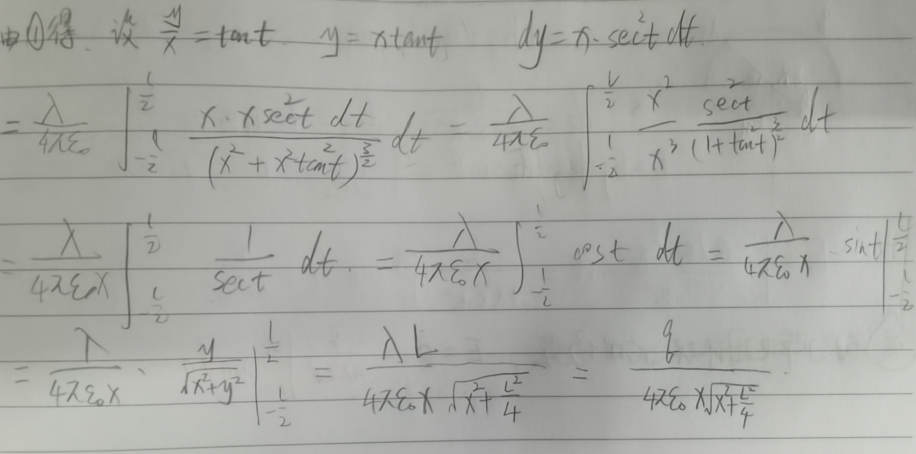 由①得. 设 y/x = tant. y = xtant, dy = x·sec²t dt.
= λ/4πε₀ ∫_{-L/2}^{L/2} x·xsec²t dt/(x²+x²tan²t)^{3/2} dt = λ/4πε₀ ∫_{-L/2}^{L/2} x²/x³ sec²t/(1+tan²t)^{3/2} dt
= λ/4πε₀x ∫_{-L/2}^{L/2} 1/sect dt. = λ/4πε₀x ∫_{-L/2}^{L/2} cost dt = λ/4πε₀x · sint |_{-L/2}^{L/2}
= λ/4πε₀x · y/√(x²+y²) |_{-L/2}^{L/2} = λL/4πε₀x√(x²+L²/4) = q/4πε₀x√(x²+L²/4)